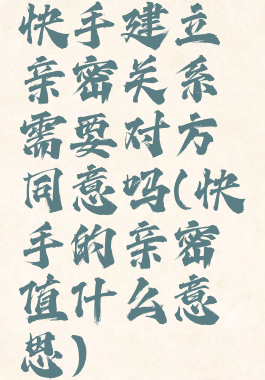 快手建立
亲密关系
需要对方
同意吗(快
手的亲密
值什么意
思)